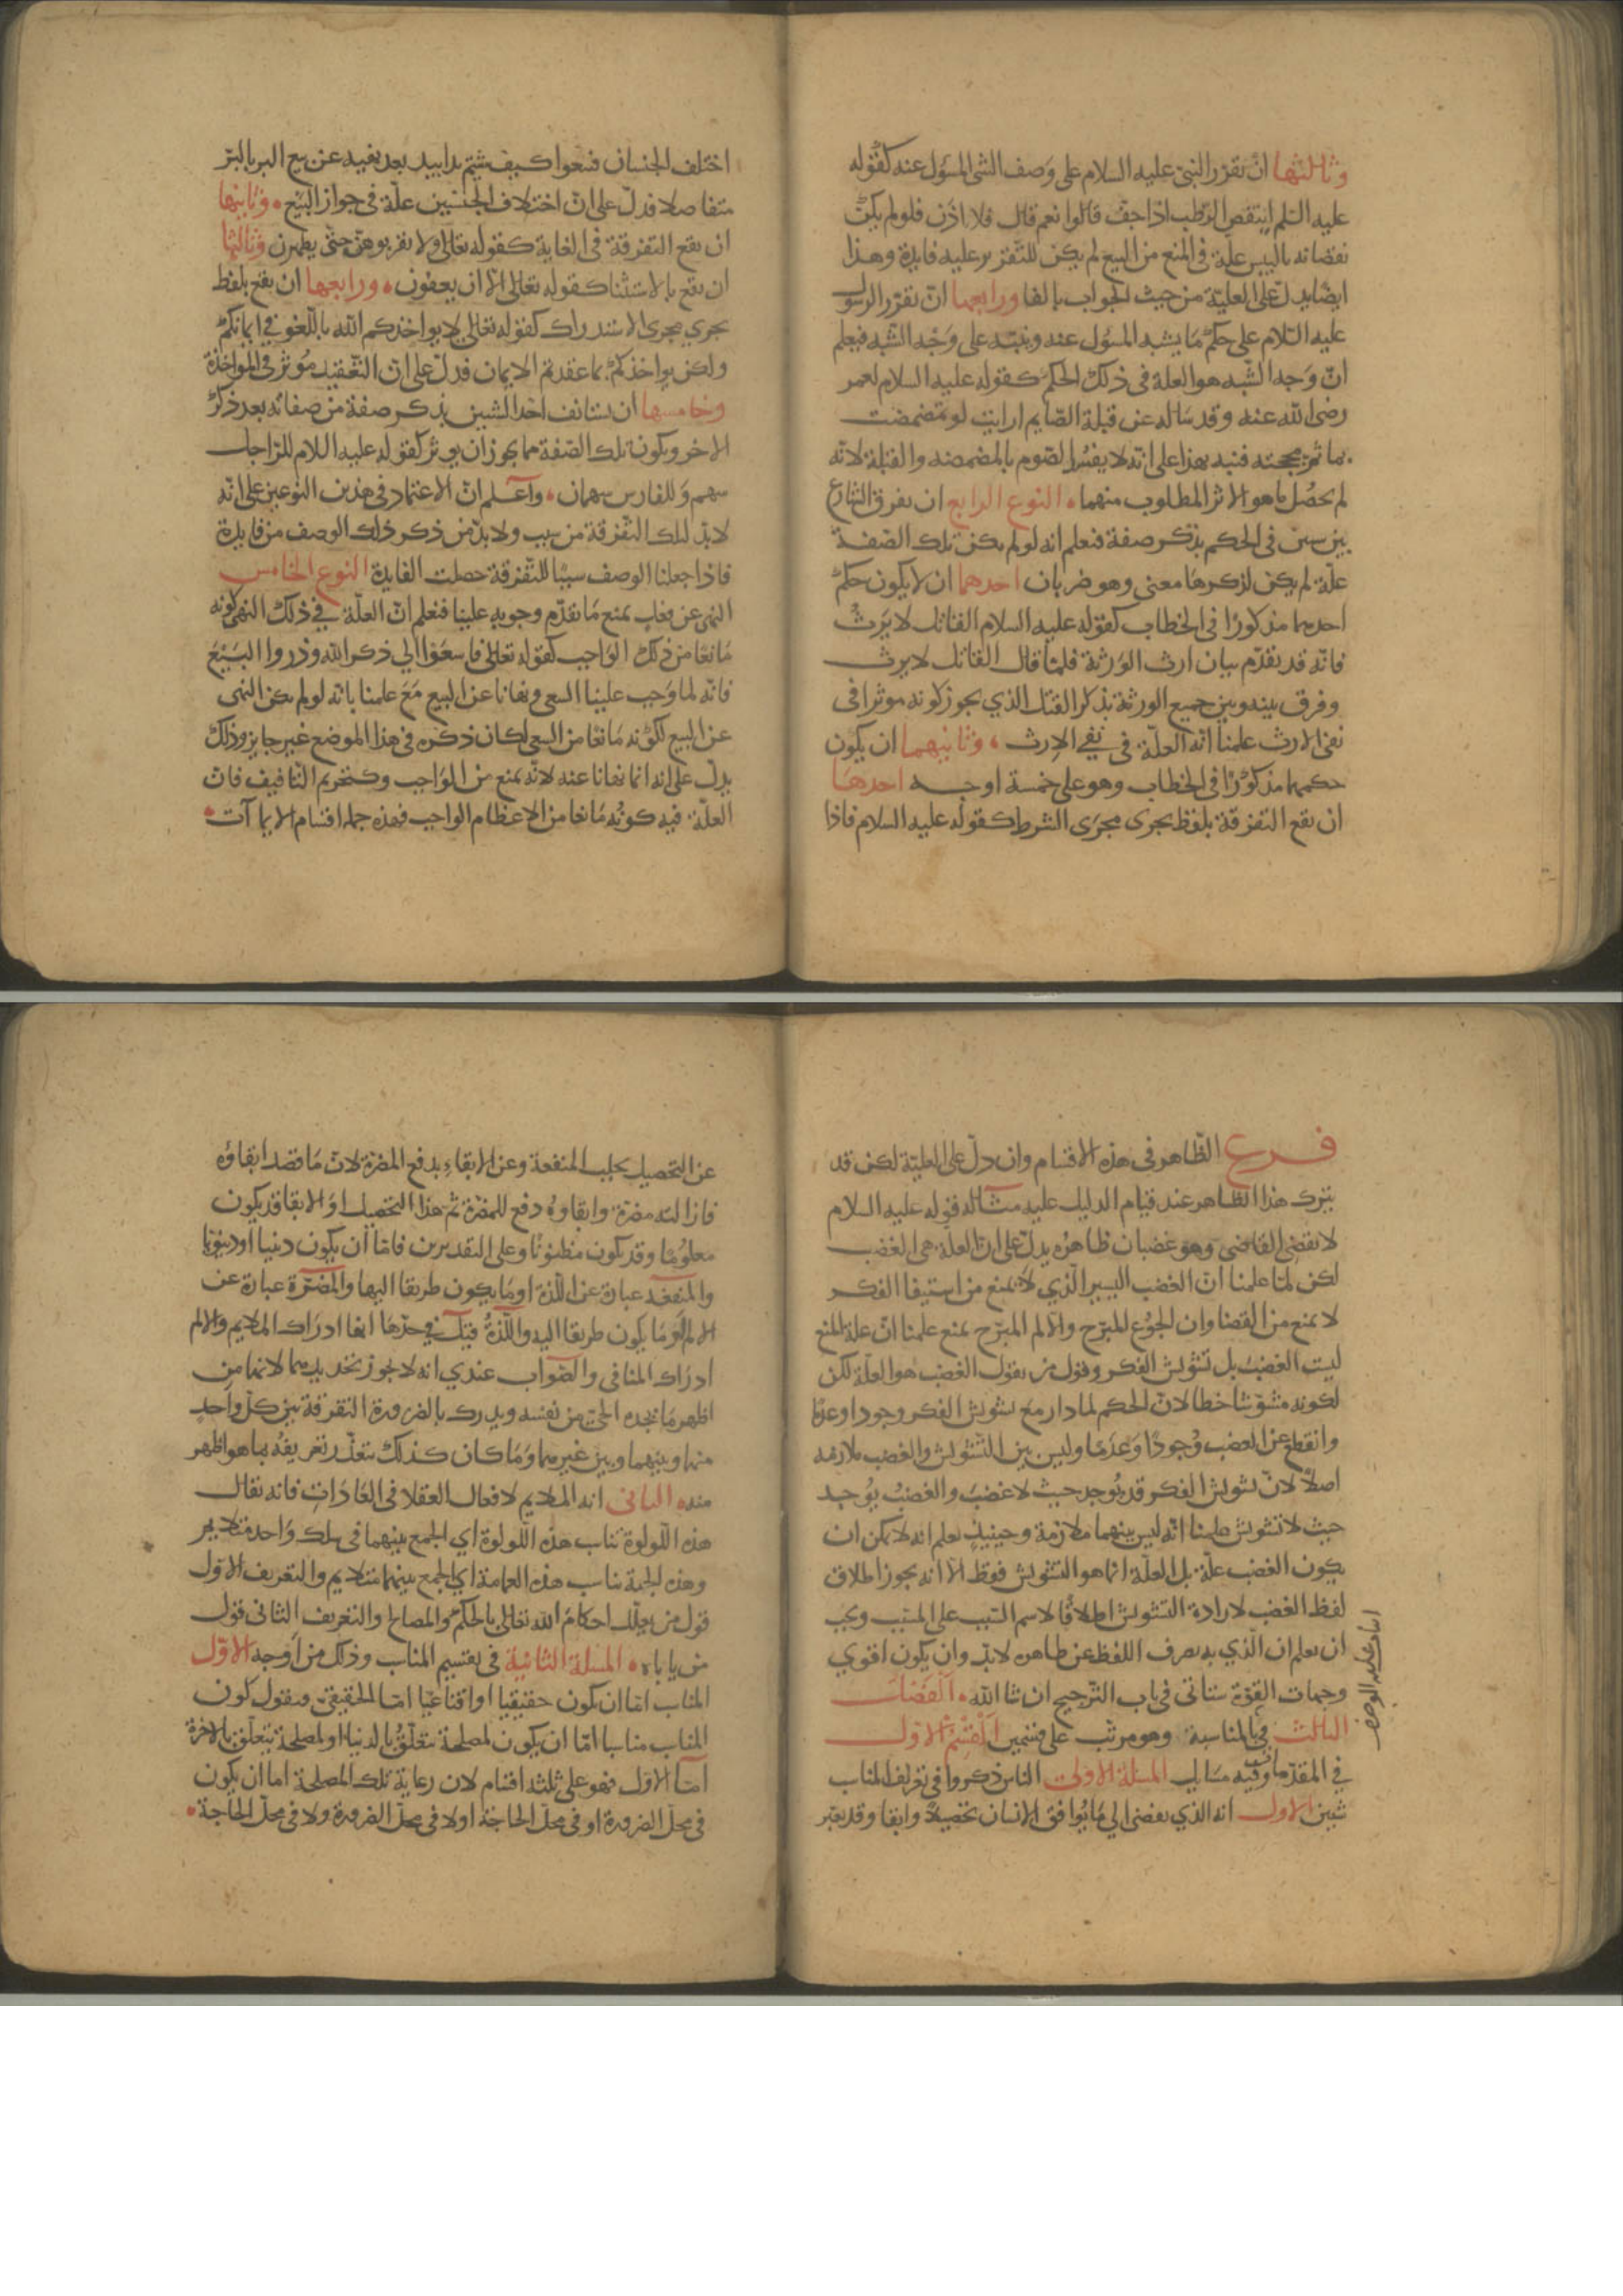 وثالثها ان يقرر النبي عليه السلام على وصف الشي المسؤل عنه كقوله
عليه السلم اينتقص الرطب اذا جف قالوا نعم قال فلا اذن فلو لم يكن
نقصانه باليبس علة في المنع من البيع لم يكن للتقرير عليه فايدة وهذا
ايضا يدل على العلية من حيث الجواب بالفا ورابعها ان يقرر الرسول
عليه السلام على حكم ما يشبه المسؤل عنه وينبه على وجه الشبه فيعلم
ان وجه الشبه هو العلة في ذلك الحكم كقوله عليه السلام لعمر
رضى الله عنه وقد ساله عن قبلة الصايم ارايت لو تمضمضت
بما ثم مججته فنبه بهذا على انه لا يفسد الصوم بالمضمضه والقبلة لانه
لم يحصل ما هو الاثر المطلوب منهما النوع الرابع ان يفرق الشارع
بين سين في الحكم بذكر صفة فنعلم انه لو لم يكن تلك الصفة
علة لم يكن لذكرها معنى وهو ضربان احدهما ان لا يكون حكم
احدهما مذكورا في الخطاب كقوله عليه السلام القاتل لا يرث
فانه قد تقدم بيان ارث الورثة فلما قال القاتل لا يرث
وفرق بينه وبين جميع الورثة بذكر القتل الذي يجوز كونه موثرا في
نفى الارث علمنا انه العلة في نفي الارث وثانيهما ان يكون
حكمهما مذكورا في الخطاب وهو على خمسة اوجه احدها
ان تقع التفرقة بلفظ يجرى مجرى الشرط كقوله عليه السلام فاذا
اختلف الجنسان فبيعوا كيف شيتم يدا بيد بعد نهيه عن بيع البر بالبر
متفاضلا فدل على ان اختلاف الجنسين علة في جواز البيع وثانيها
ان تقع التفرقة في الغاية كقوله تعالى ولا تقربوهن حتى يطهرن وثالثها
ان تقع بالاستثنا كقوله تعالى الا ان يعفون ورابعها ان تقع بلفظ
يجري مجرى الاستدراك كقوله تعالى لا يواخذكم الله باللغو في ايمانكم
ولكن يواخذكم بما عقدتم الايمان فدل على ان التعقيد موثر في المواخذة
وخامسها ان يستانف احد الشيين بذكر صفة من صفاته بعد ذكر
الاخر ويكون تلك الصفة مما يجوز ان يوثر كقوله عليه اللام للراجل
سهم وللفارس سهمان واعلم ان الاعتماد في هذين النوعين على انه
لابد لتلك التفرقة من سبب ولابد من ذكر ذلك الوصف من فايدة
فاذا جعلنا الوصف سببا للتفرقة حصلت الفايدة النوع الخامس
النهى عن فعل يمنع ما تقدم وجوبه علينا فنعلم ان العلة في ذلك النهى كونه
مانعا من ذلك الواجب كقوله تعالى فاسعوا الي ذكر الله وذروا البيع
فانه لما وجب علينا السعى ونهانا عن البيع مع علمنا بانه لو لم يكن النهى
عن البيع لكونه مانعا من السعى لكان ذكره في هذا الموضع غير جايز وذلك
يدل على انه انما نهانا عنه لانه يمنع من الواجب وكتحريم التافيف فان
العلة فيه كونه مانعا من الاعظام الواجب فهذه جملة اقسام الايماآت
فرع الظاهر في هذه الاقسام وان دل على العلية لكن قد
يترك هذا الظاهر عند قيام الدليل عليه مثاله قوله عليه السلام
لا يقضى القاضى وهو غضبان ظاهره يدل على ان العلة هي الغضب
لكن لما علمنا ان الغضب اليسير الذي لا يمنع من استيفا الفكر
لا يمنع من القضا وان الجوع المبرح والالم المبرح يمنع علمنا ان علة المنع
ليست الغضب بل تشويش الفكر وقول من يقول الغضب هو العلة لكن
لكونه مشوشا خطا لان الحكم لما دار مع تشويش الفكر وجودا وعدما
وانقطع عن الغضب وجودا وعدما وليس بين التشويش والغضب ملازمه
اصلا لان تشويش الفكر قد يوجد حيث لا غضب والغضب يوجد
حيث لا تشويش علمنا انه ليس بينهما ملازمة وحينيذ نعلم انه لا يمكن ان
يكون الغضب علة بل العلة انما هو التشويش فقط الا انه يجوز اطلاق
لفظ الغضب لارادة التشويش اطلاقا لاسم السبب على المسبب ويجب
ان يعلم ان الذي به يصرف اللفظ عن ظاهره لابد وان يكون اقوي
وجهات القوة ستاتى في باب الترجيح ان شا الله الفصل
الثالث في المناسبة وهو مرتب على قسمين القسم الاول
في المقدمات وفيه مسايل المسلة الاولى الناس ذكروا في تعريف المناسب
شيين الاول انه الذي يفضى الي ما يوافق الانسان تحصيلا وابقا وقد يعبر
عن التحصيل بجلب المنفعة وعن الابقاء بدفع المضرة لان ما قصد ابقاؤه
فازالته مضرة وابقاوه دفع للمضرة ثم هذا التحصيل او الابقا قد يكون
معلوما وقد يكون مظنونا وعلى التقديرين فاما ان يكون دينيا او دنيويا
والمنفعة عبارة عن اللذة او ما يكون طريقا اليها والمضرة عبارة عن
الالم او ما يكون طريقا اليه واللذة قيل في حدها انها ادراك الملايم والالم
ادراك المنافى والصواب عندي انه لا يجوز تحديدهما لانهما من
اظهر ما يجده الحى من نفسه ويدرك بالضرورة التفرقة بين كل واحد
منهما وبينهما وبين غيرهما وما كان كذلك يتعذر تعريفه بما هو اظهر
منه الثانى انه الملايم لافعال العقلا في العادات فانه يقال
هذه اللولوة تناسب هذه اللولوة اي الجمع بينهما في سلك واحد متلايم
وهذه الجبة تناسب هذه العمامة اي الجمع بينهما متلايم والتعريف الاول
قول من يعلل احكام الله تعالى بالحكم والمصالح والتعريف الثانى قول
من ياباه المسلة الثانية في تقسيم المناسب وذلك من اوجه الاول
المناسب اما ان يكون حقيقيا او اقناعيا اما الحقيقي فنقول كون
المناسب مناسبا اما ان يكون لمصلحة تتعلق بالدنيا او لمصلحة تتعلق بالاخرة
اما الاول فهو على ثلثه اقسام لان رعاية تلك المصلحة اما ان يكون
في محل الضرورة او في محل الحاجة او لا في محل الضرورة ولا في محل الحاجة